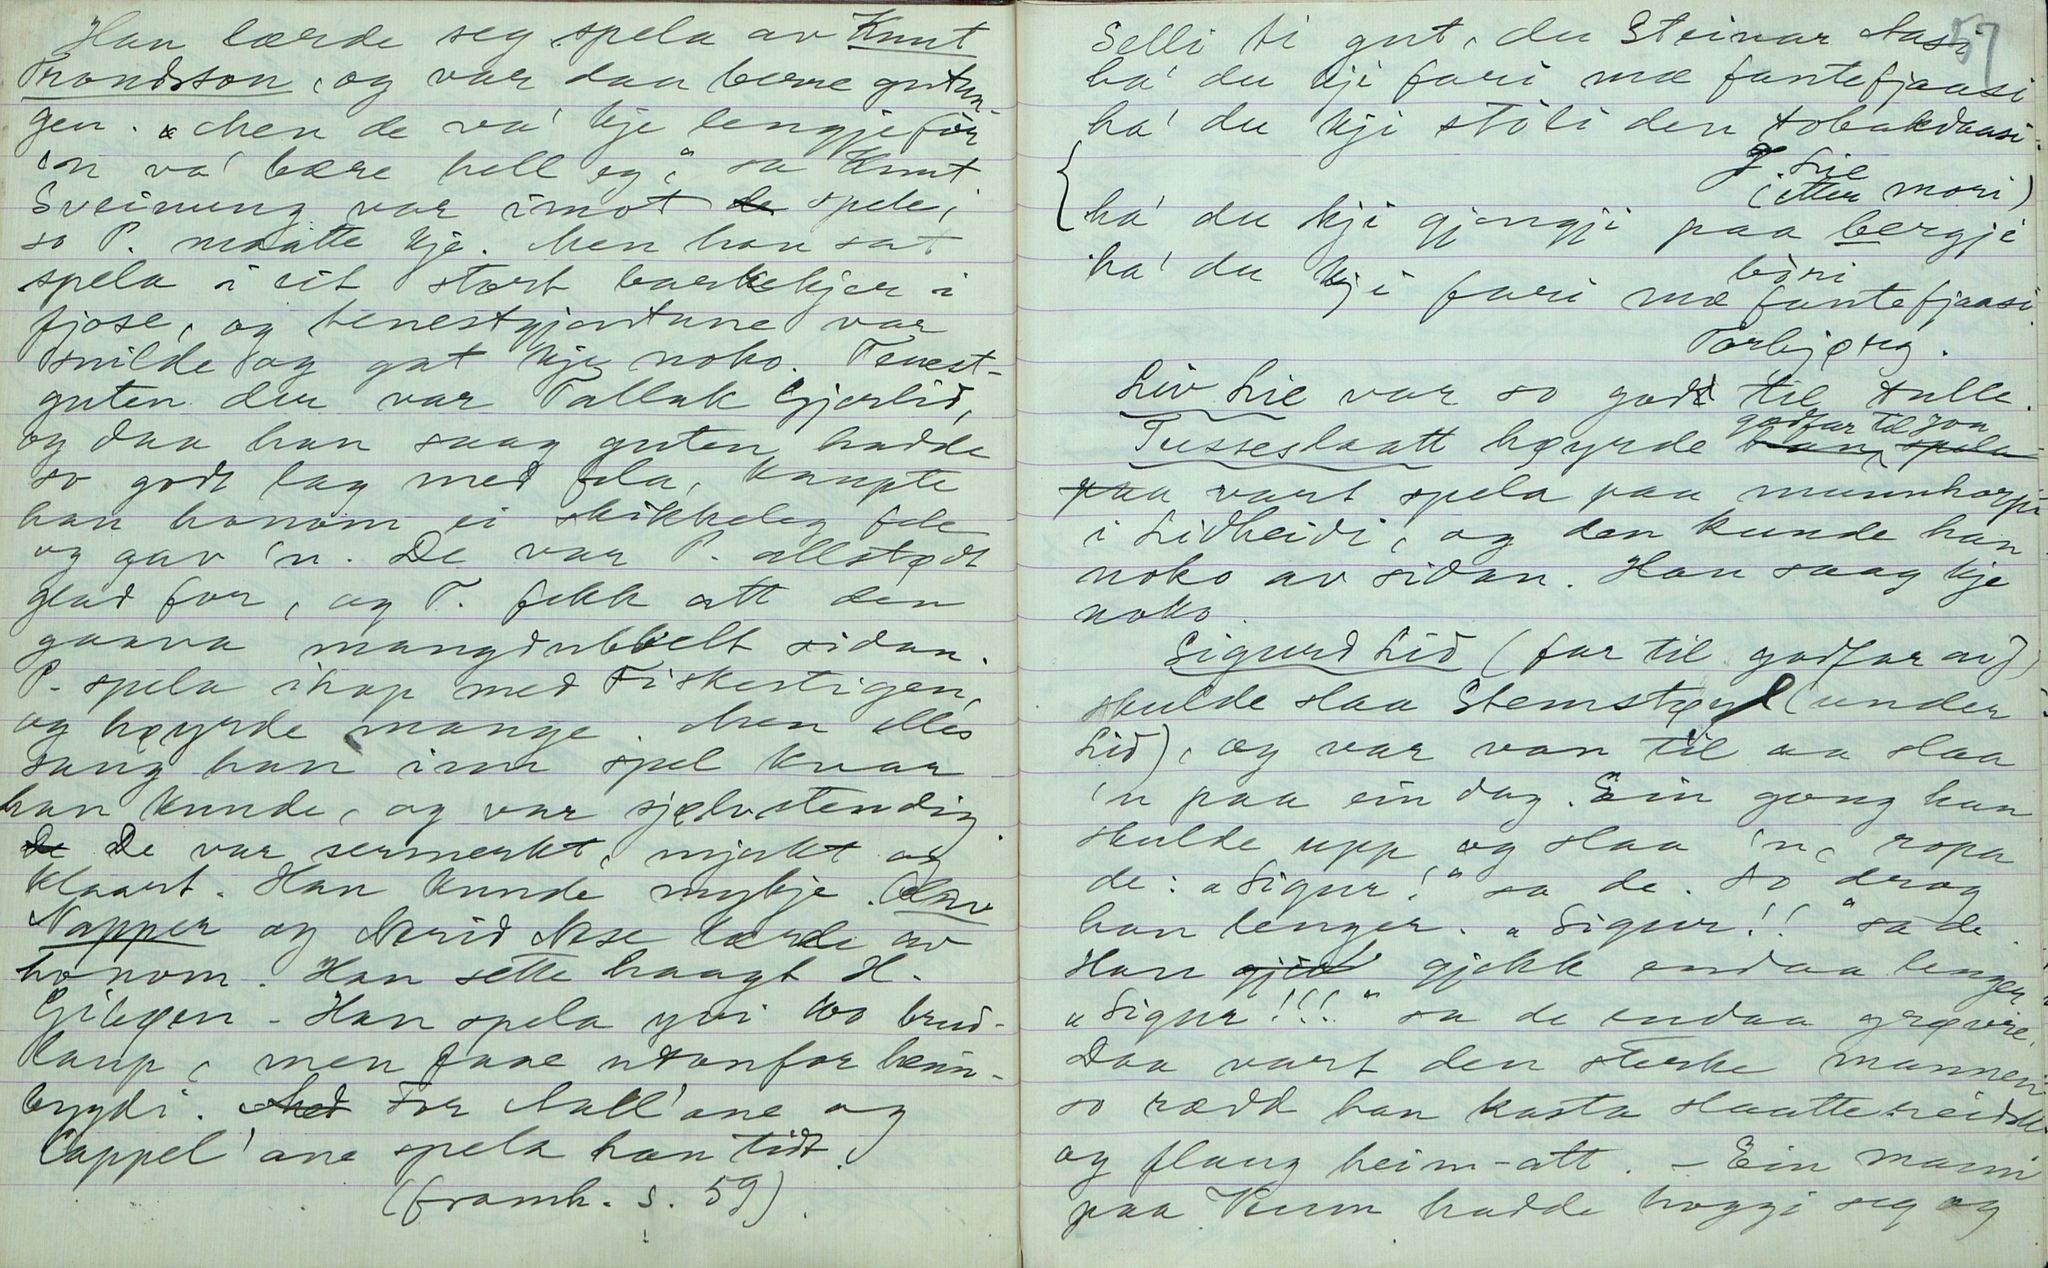 Han lærde seg spela av Knut
Trondsson, og var daa berre gutun-
gen. „Men de va' kje lengje för
'on va' bære hell eg," sa Knut
Sveinung var imot de spele,
so P. maatte kje. Men han sat
spela i eit stort barkekjer i
fjose, og tenestgjentune var
snilde og gat kje noko. Tenest-
guten der var Tallak Gjerlid,
og daa han saag guten hadde
so godt lag med fela, kaupte
han honom ei skikkeleg fele
og gav 'n. De var P. allstødt
glad for, og T. fekk att den
gaava mangdubbelt sidan.
P. spela ihop med Fiskestigen,
og høyrde mange. Men elles
sang han inn spel kvar
han kunde, og var sjølvstendig.
De De var sermerkt, mjukt og
klaart. Han kunde mykje. Olav
Napper og Nerid Nese lærde av
honom. Han sette haagt H.
Gibøen – Han spela yvi 100 brud-
laup, men faae utanfor heim-
bygdi. Med For Aall'ane og
Cappel'ane spela han tidt.
(framh. s. 59)
57
Selli ti gut, du Steinar Aasi
ha' du kji fari mæ fantefjaasi
ha' du kji stòli den tobakdaasi.
J. Lie
(etter mori)
ha' du kji gjengji paa bergje
bòri
ha' du kji fari mæ fantefjaasi.
Torbjørg.
Liv Lie var so god til tulle.
godfar til Jon
Tusseslaatt høyrde han, spela
paa vart spela paa munnhorpa
i Lidheidi, og den kunde han
noko av sidan. Han saag kje
noko.
Sigurd Lid (far til godfar av J)
skulde slaa Stemstøyl (under
Lid), og var van til aa slaa
'n paa ein dag. Ein gong han
skulde upp og slaa 'n, ropa
de: „Sigur!" sa de. So drog
han lenger. „Sigur!!" sa de.
Han gjek gjekk endaa lenger
„Sigur!!!" sa de endaa grøvre.
Daa vart den sterke mannen
so rædd han kasta slaattereidsk.
og flaug heim-att. – Ein mann
paa Kum hadde hoggi seg og